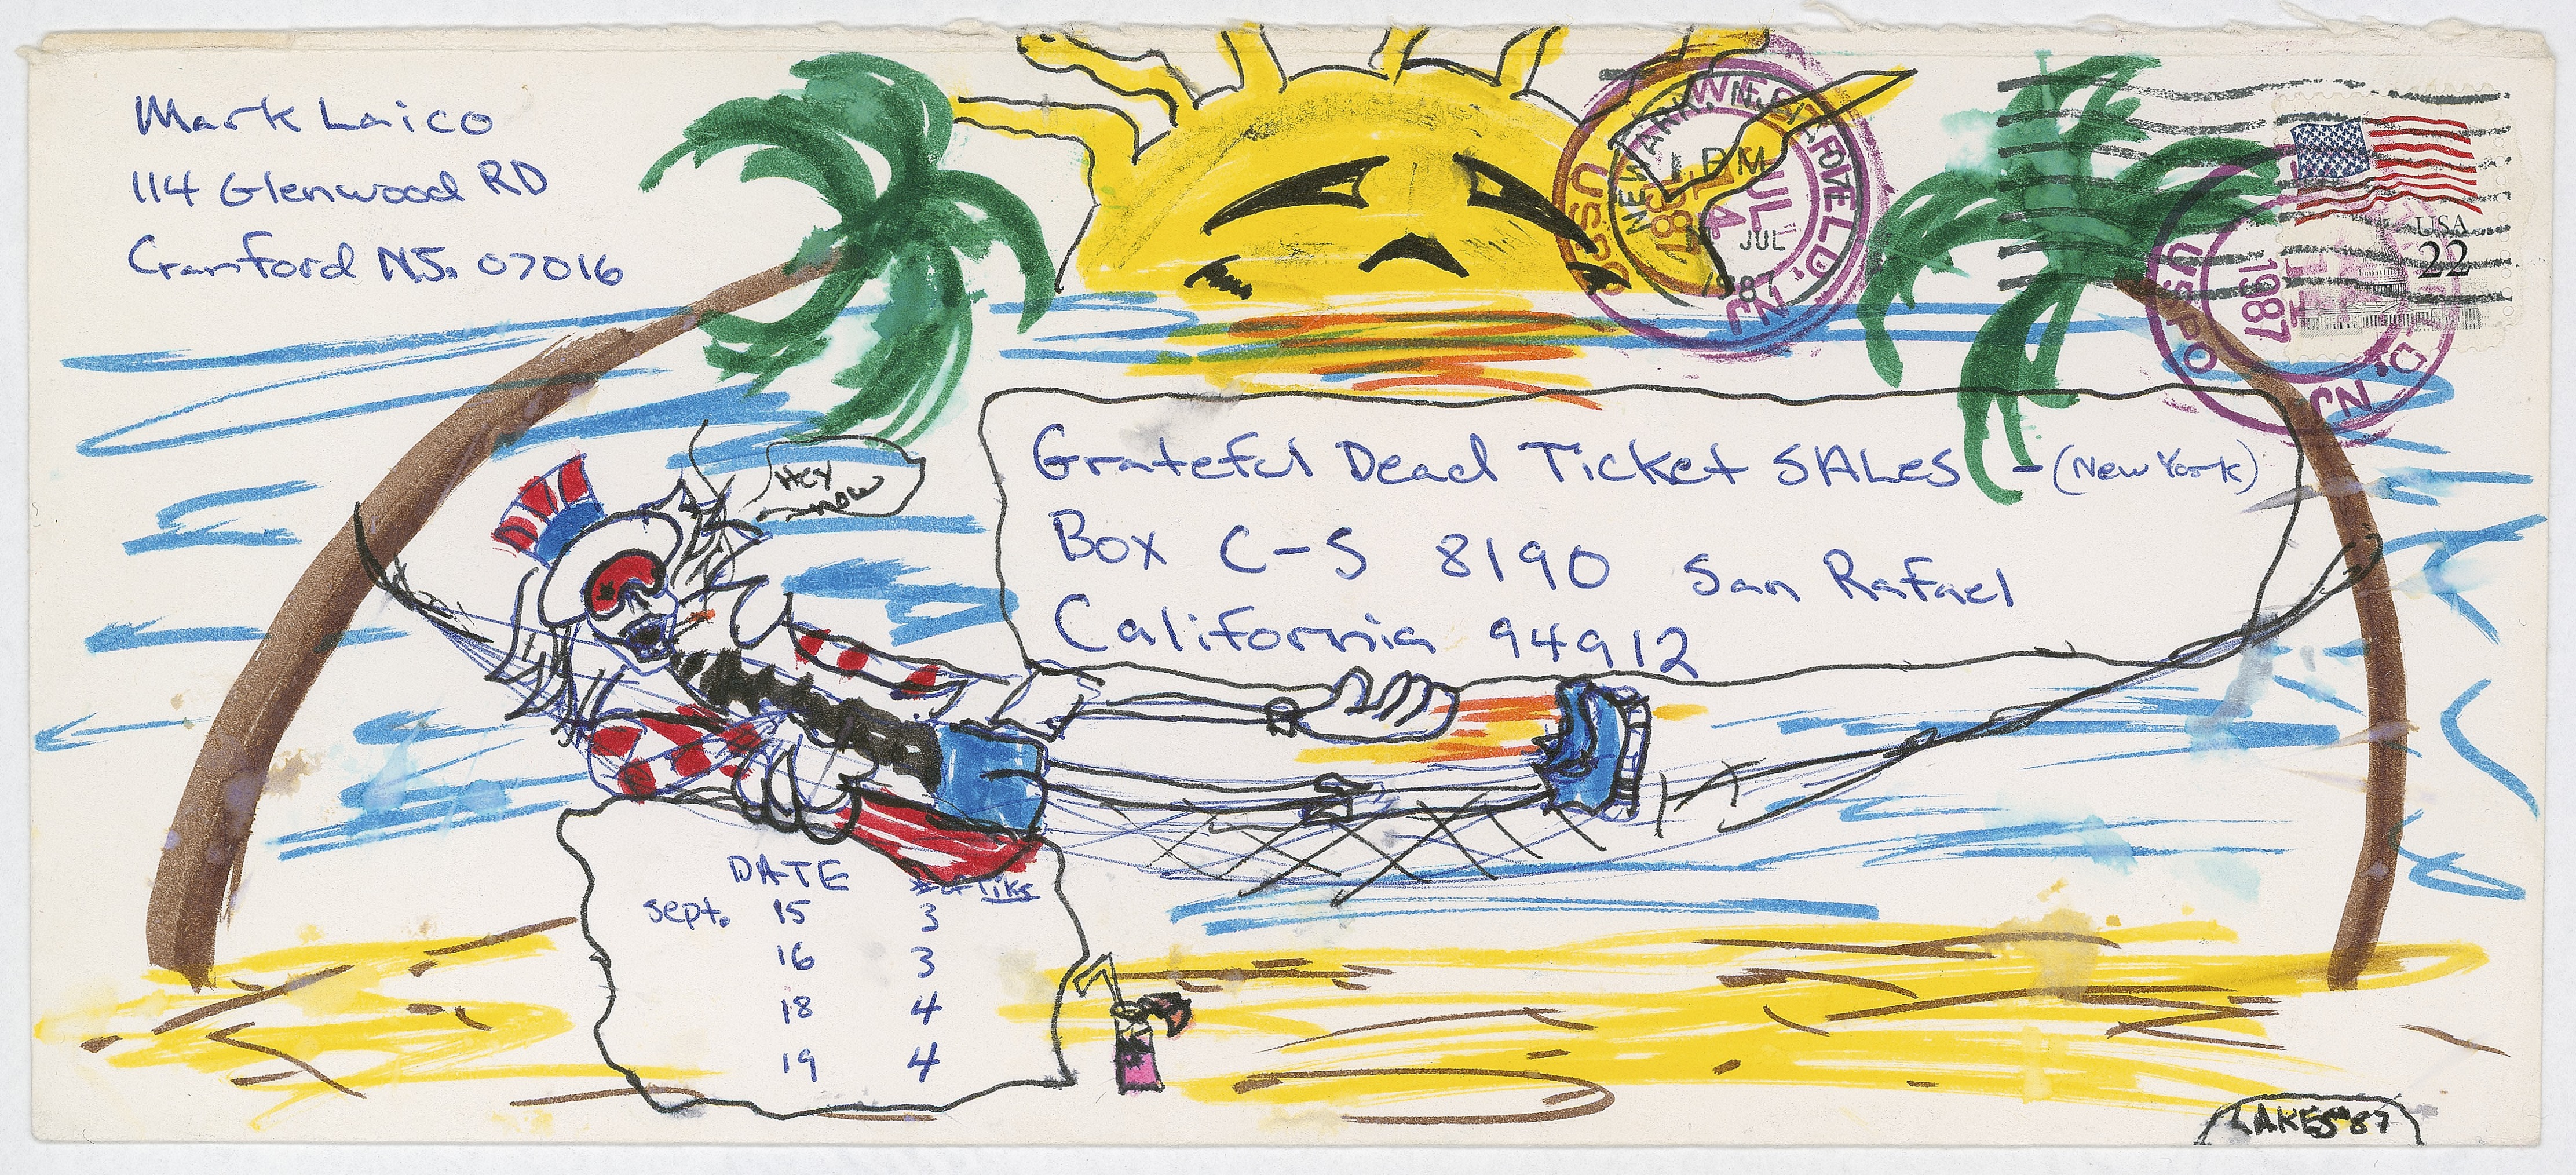 Mark Laico
114 Glenwood RD
Cranford NJ. 07016
NEWARK, N.J.
PM
JUL
1987
WESTFIELD. NJ
JUL
1987
USPO
USA
22
1987
USPO
D. NJ
Grateful Dead Ticket SALES - (New York)
Box C-S 8190 San Rafael
California 94912
HEY
NOW
DATE # of tiks
Sept. 15 3
16 3
18 4
19 4
LAKES 87